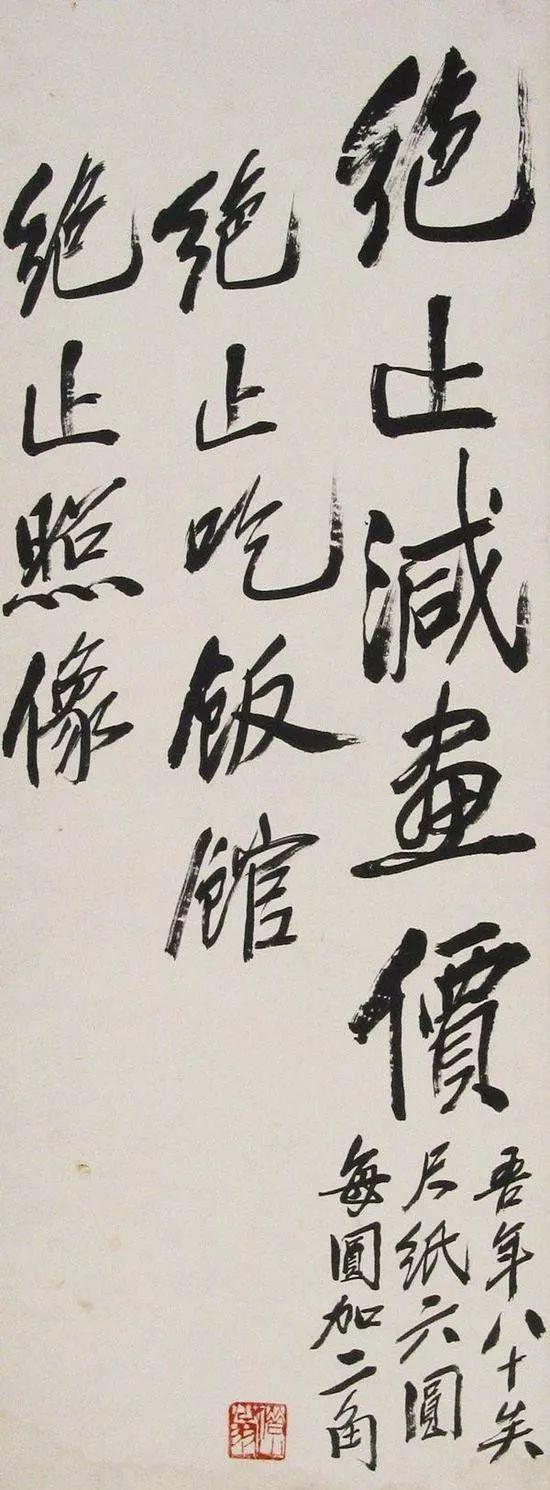 絶止減畫價
吾年八十矣
尺紙六圓
每圓加二角
絶止吃飯館
絶止照像
借山翁